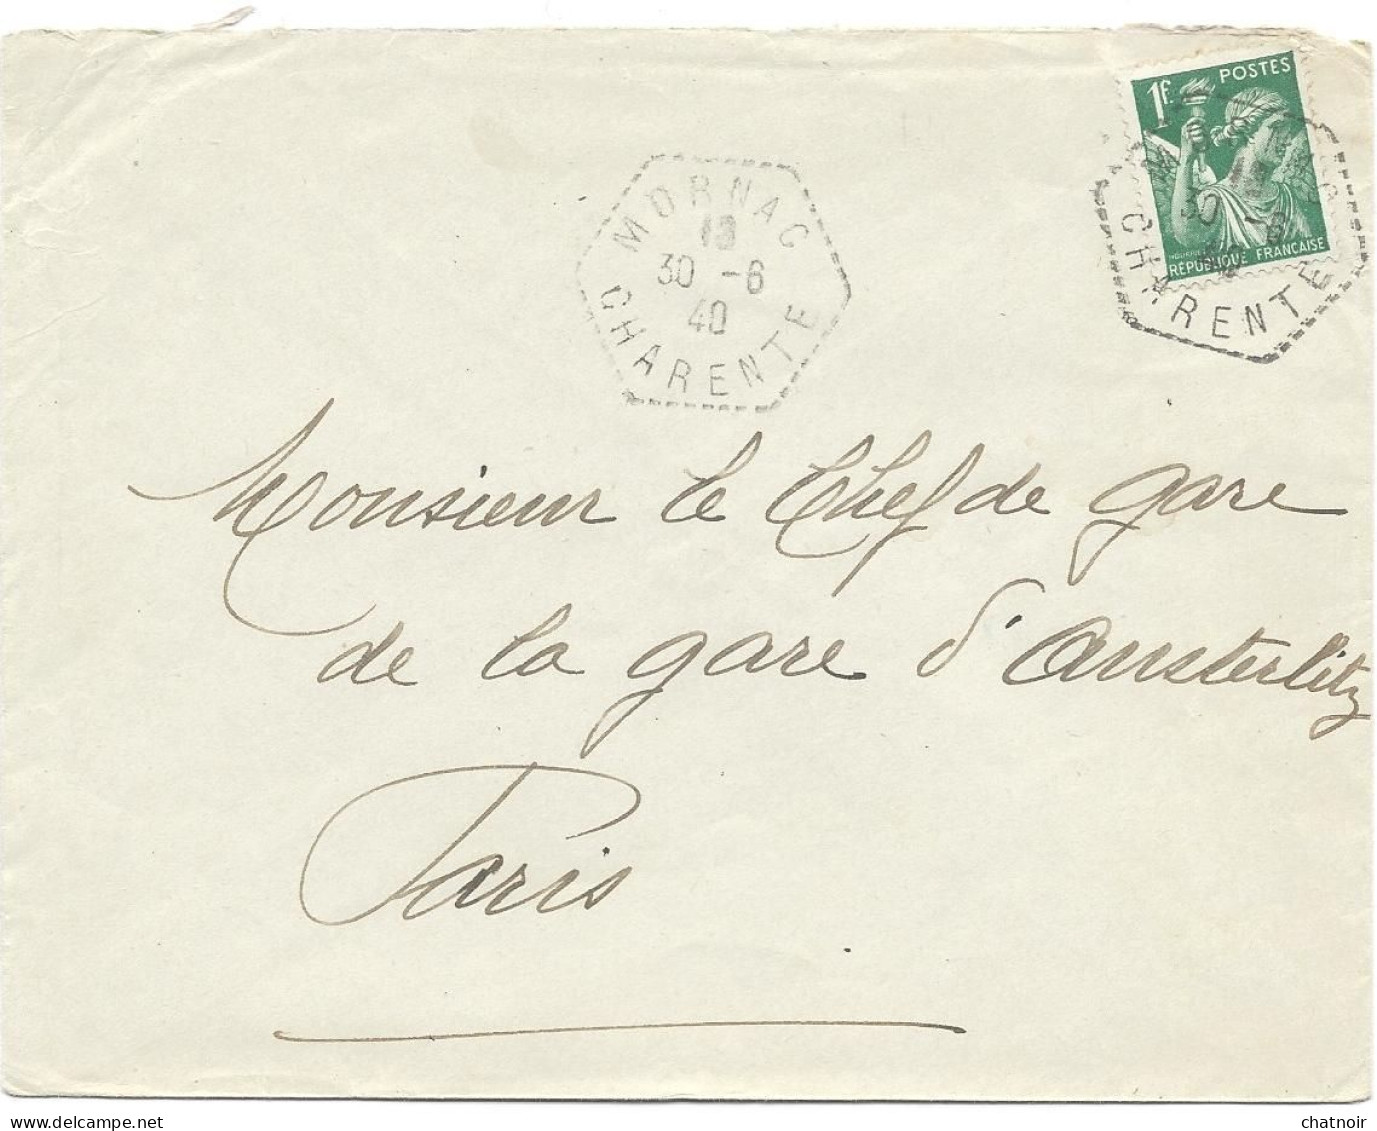 POSTES
1F
RÉPUBLIQUE FRANÇAISE
MORNAC
13
30 -6
40
CHARENTE
30 -6
CHARENTE
Monsieur le Chef de gare
de la gare d'Austerlitz
Paris
chatnoir